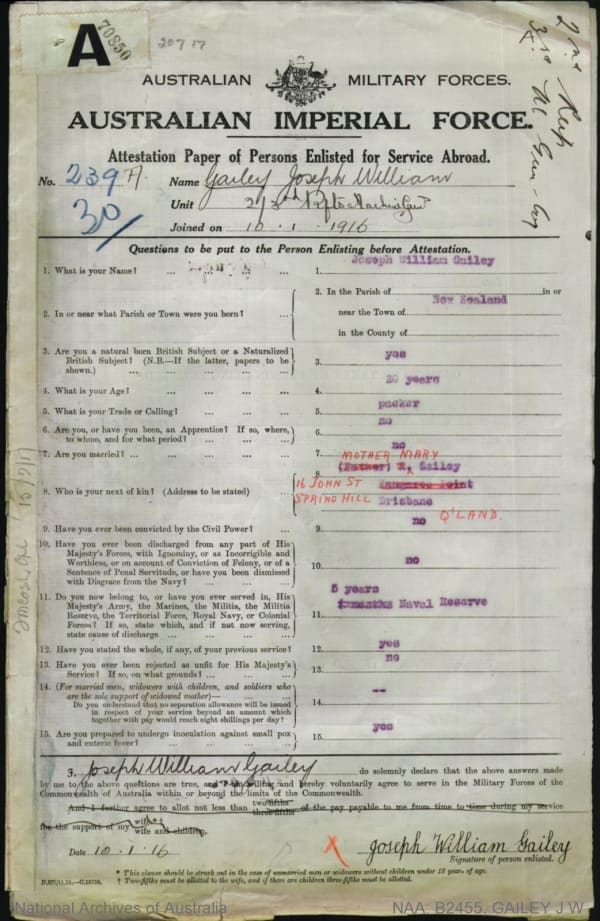 A
70850
20 7 17
AUSTRALIAN MILITARY FORCES.
AUSTRALIAN IMPERIAL FORCE.
Attestation Paper of Persons Enlisted for Service Abroad.
No. 239A. Name Gailey Joseph William
30/
Unit 2/3rd
Joined on 10.1.1916
Questions to be put to the Person Enlisting before Attestation.
1. What is your Name? ... ... ... ... 1. Joseph William Gailey
2. In or near what Parish or Town were you born? ...
2. In the Parish of in or
New Zealand
near the Town of
in the County of
3. Are you a natural born British Subject or a Naturalized
British Subject? (N.B.—If the latter, papers to be
shown.) ... ... ... ... ...
3. yes
4. What is your Age? ... ... ... ... 4. 20 years
5. What is your Trade or Calling? ... ... ... 5. packer
6. Are you, or have you been, an Apprentice? If so, where,
to whom, and for what period? ... ... ...
6. no
7. Are you married? ... ... ... ... ... 7. no
8. Who is your next of kin? (Address to be stated) ...
MOTHER MARY
8. (Father) Gailey
16 JOHN ST Kangaroo Point
SPRING HILL Brisbane
Q'LAND.
9. Have you ever been convicted by the Civil Power? ... 9. no
10. Have you ever been discharged from any part of His
Majesty's Forces, with Ignominy, or as Incorrigible and
Worthless, or on account of Conviction of Felony, or of a
Sentence of Penal Servitude, or have you been dismissed
with Disgrace from the Navy? ... ... ...
10. no
11. Do you now belong to, or have you ever served in, His
Majesty's Army, the Marines, the Militia, the Militia
Reserve, the Territorial Force, Royal Navy, or Colonial
Forces? If so, state which, and if not now serving,
state cause of discharge ... ... ... ...
5 years
11. Naval Reserve
12. Have you stated the whole, if any, of your previous service? 12. yes
13. Have you ever been rejected as unfit for His Majesty's
Service? If so, on what grounds? ... ... ...
13. no
14. (For married men, widowers with children, and soldiers who
are the sole support of widowed mother)—
Do you understand that no separation allowance will be issued
in respect of your service beyond an amount which
together with pay would reach eight shillings per day?
14. --
15. Are you prepared to undergo inoculation against small pox
and enteric fever? ... ... ... ...
15. yes
I, Joseph William Gailey do solemnly declare that the above answers made
by me to the above questions are true, and I am willing and hereby voluntarily agree to serve in the Military Forces of the
Commonwealth of Australia within or beyond the limits of the Commonwealth.
And I further agree to allot not less than two-fifths three-fifths of the pay payable to me from time to time during my service
for the support of my wife wife and children.
Date 10.1.16
X Joseph William Gailey
Signature of person enlisted.
* This clause should be struck out in the case of unmarried men or widowers without children under 18 years of age.
† Two-fifths must be allotted to the wife, and if there are children three-fifths must be allotted.
National Archives of Australia
NAA: B2455, GAILEY J W